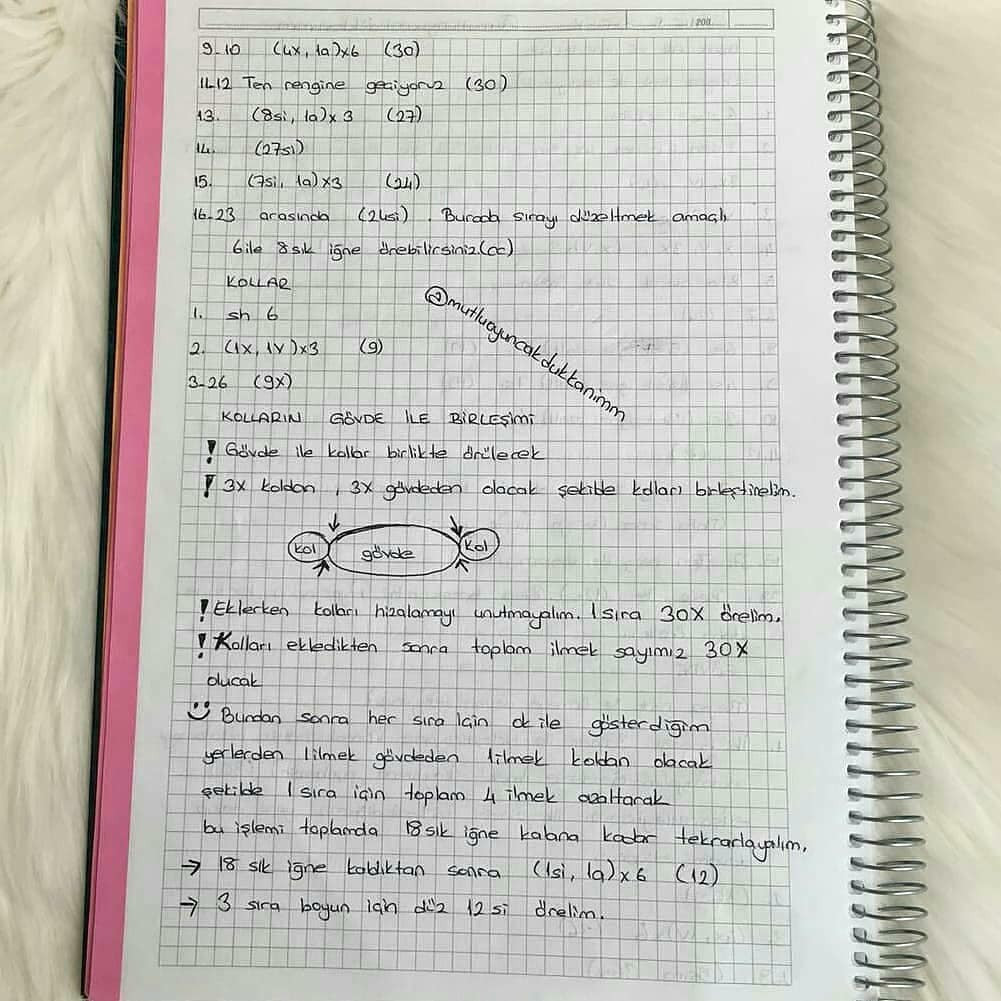 /200
9-10 (4x, 1a)x6 (30)
11-12 Ten rengine geçiyoruz (30)
13. (8si, 1a)x3 (27)
14. (27si)
15. (7si, 1a)x3 (24)
16-23 arasında (24si). Burada sırayı düzeltmek amaçlı
6 ile 8 sık iğne örebilirsiniz.(cc)
KOLLAR
1. sh 6
2. (1x, 1v)x3 (9)
3-26 (9x)
@mutluoyuncakdukkanimm
KOLLARIN GÖVDE İLE BİRLEŞİMİ
! Gövde ile kollar birlikte örülecek
! 3x koldan, 3x gövdeden olacak şekilde kolları birleştirelim.
kol gövde kol
! Eklerken kolları hizalamayı unutmayalım. 1 sıra 30x örelim.
! Kolları ekledikten sonra toplam ilmek sayımız 30x
olucak
Bundan sonra her sıra için ok ile gösterdiğim
yerlerden 1 ilmek gövdeden 1 ilmek koldan olacak
şekilde 1 sıra için toplam 4 ilmek azaltarak
bu işlemi toplamda 18 sık iğne kalana kadar tekrarlayalım.
→ 18 sık iğne kaldıktan sonra (1si, 1a)x6 (12)
→ 3 sıra boyun için düz 12 si örelim.